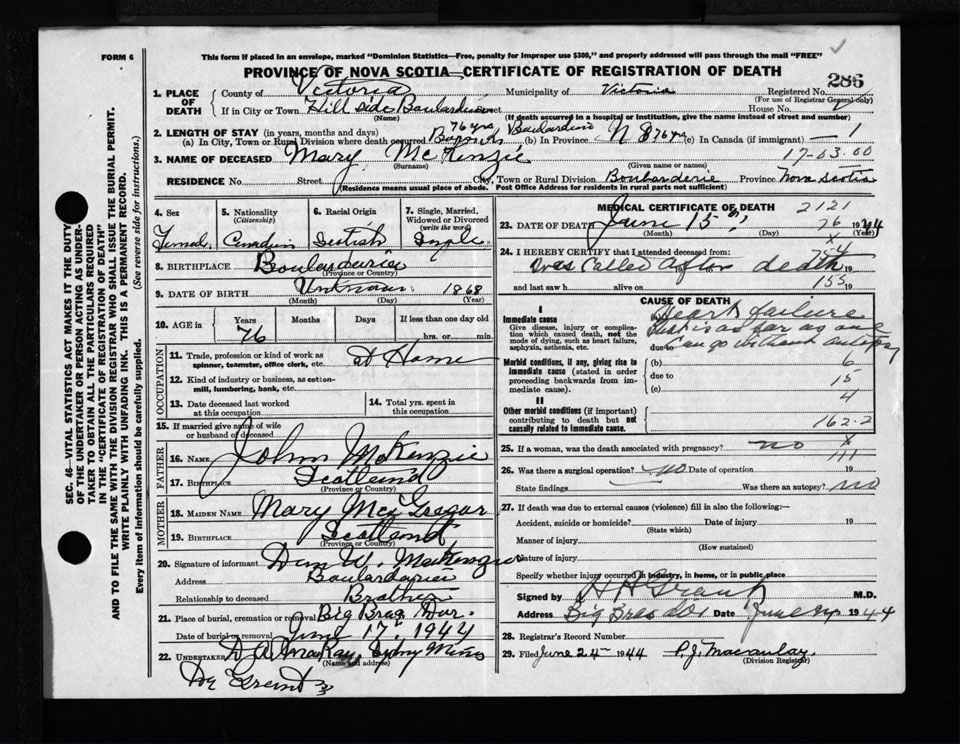 FORM 6
This form if placed in an envelope, marked "Dominion Statistics—Free, penalty for improper use $300," and properly addressed will pass through the mail "FREE"
PROVINCE OF NOVA SCOTIA—CERTIFICATE OF REGISTRATION OF DEATH
286
1. PLACE OF DEATH
County of Victoria Municipality of Victoria Registered No.
(For use of Registrar General only)
If in City or Town Hill side Boularderie Street House No.
(Name) (If death occurred in a hospital or institution, give the name instead of street and number)
2. LENGTH OF STAY (in years, months and days)
(a) In City, Town or Rural Division where death occurred 76 yrs Boularderie (b) in Province N S 76 yrs (c) in Canada (if immigrant) — 1
17-03.00
3. NAME OF DECEASED Mary McKenzie
(Surname) (Given name or names)
RESIDENCE No. Street City, Town or Rural Division Boularderie Province Nova Scotia
(Residence means usual place of abode. Post Office Address for residents in rural parts not sufficient)
4. Sex Female
5. Nationality (Citizenship) Canadian
6. Racial Origin Scottish
7. Single, Married, Widowed or Divorced (write the word) Single
8. BIRTHPLACE Boularderie
(Province or Country)
9. DATE OF BIRTH Unknown 1868
(Month) (Day) (Year)
10. AGE in Years Months Days If less than one day old
76 hrs. or min.
OCCUPATION
11. Trade, profession or kind of work as spinner, teamster, office clerk, etc. at Home
12. Kind of industry or business, as cotton-mill, lumbering, bank, etc.
13. Date deceased last worked at this occupation
14. Total yrs. spent in this occupation
15. If married give name of wife or husband of deceased
FATHER
16. NAME John McKenzie
17. BIRTHPLACE Scotland
(Province or Country)
MOTHER
18. MAIDEN NAME Mary McGregor
19. BIRTHPLACE Scotland
(Province or Country)
20. Signature of informant Dan W. MacKenzie
Address Boularderie
Relationship to deceased Brother
21. Place of burial, cremation or removal Big Bras Dor.
Date of burial or removal June 17, 1944
22. UNDERTAKER D. A. MacKay, Sydney Mines
(Name and address)
MEDICAL CERTIFICATE OF DEATH
2121
23. DATE OF DEATH June 15th, 1944
(Month) (Day) (Year)
76
x
24. I HEREBY CERTIFY that I attended deceased from:
Was Called After death 19
754
and last saw h alive on 19
155
CAUSE OF DEATH
I
Immediate cause
Give disease, injury or complication which caused death, not the mode of dying, such as heart failure, asphyxia, asthenia, etc.
(a) Heart failure
this is as far as one
due to can go without autopsy
Morbid conditions, if any, giving rise to immediate cause (stated in order proceeding backwards from immediate cause).
(b) 6
due to 15
(c) 4
II
Other morbid conditions (if important) contributing to death but not causally related to immediate cause.
162-2
x
111
25. If a woman, was the death associated with pregnancy? no
26. Was there a surgical operation? no Date of operation 19
State findings Was there an autopsy? no
27. If death was due to external causes (violence) fill in also the following:—
Accident, suicide or homicide? Date of injury 19
(State which)
Manner of injury
(How sustained)
Nature of injury
Specify whether injury occurred in industry, in home, or in public place
Signed by H A Grant M.D.
Address Big Bras dor Date June 24 1944
28. Registrar's Record Number
29. Filed June 24th 1944 P. J. Macaulay
(Division Registrar)
SEC. 46—VITAL STATISTICS ACT MAKES IT THE DUTY
OF THE UNDERTAKER OR PERSON ACTING AS UNDER-
TAKER TO OBTAIN ALL THE PARTICULARS REQUIRED
IN THE "CERTIFICATE OF REGISTRATION OF DEATH"
AND TO FILE THE SAME WITH THE DIVISION REGISTRAR WHO SHALL ISSUE THE BURIAL PERMIT.
WRITE PLAINLY WITH UNFADING INK. THIS IS A PERMANENT RECORD.
Every item of information should be carefully supplied. (See reverse side for instructions.)